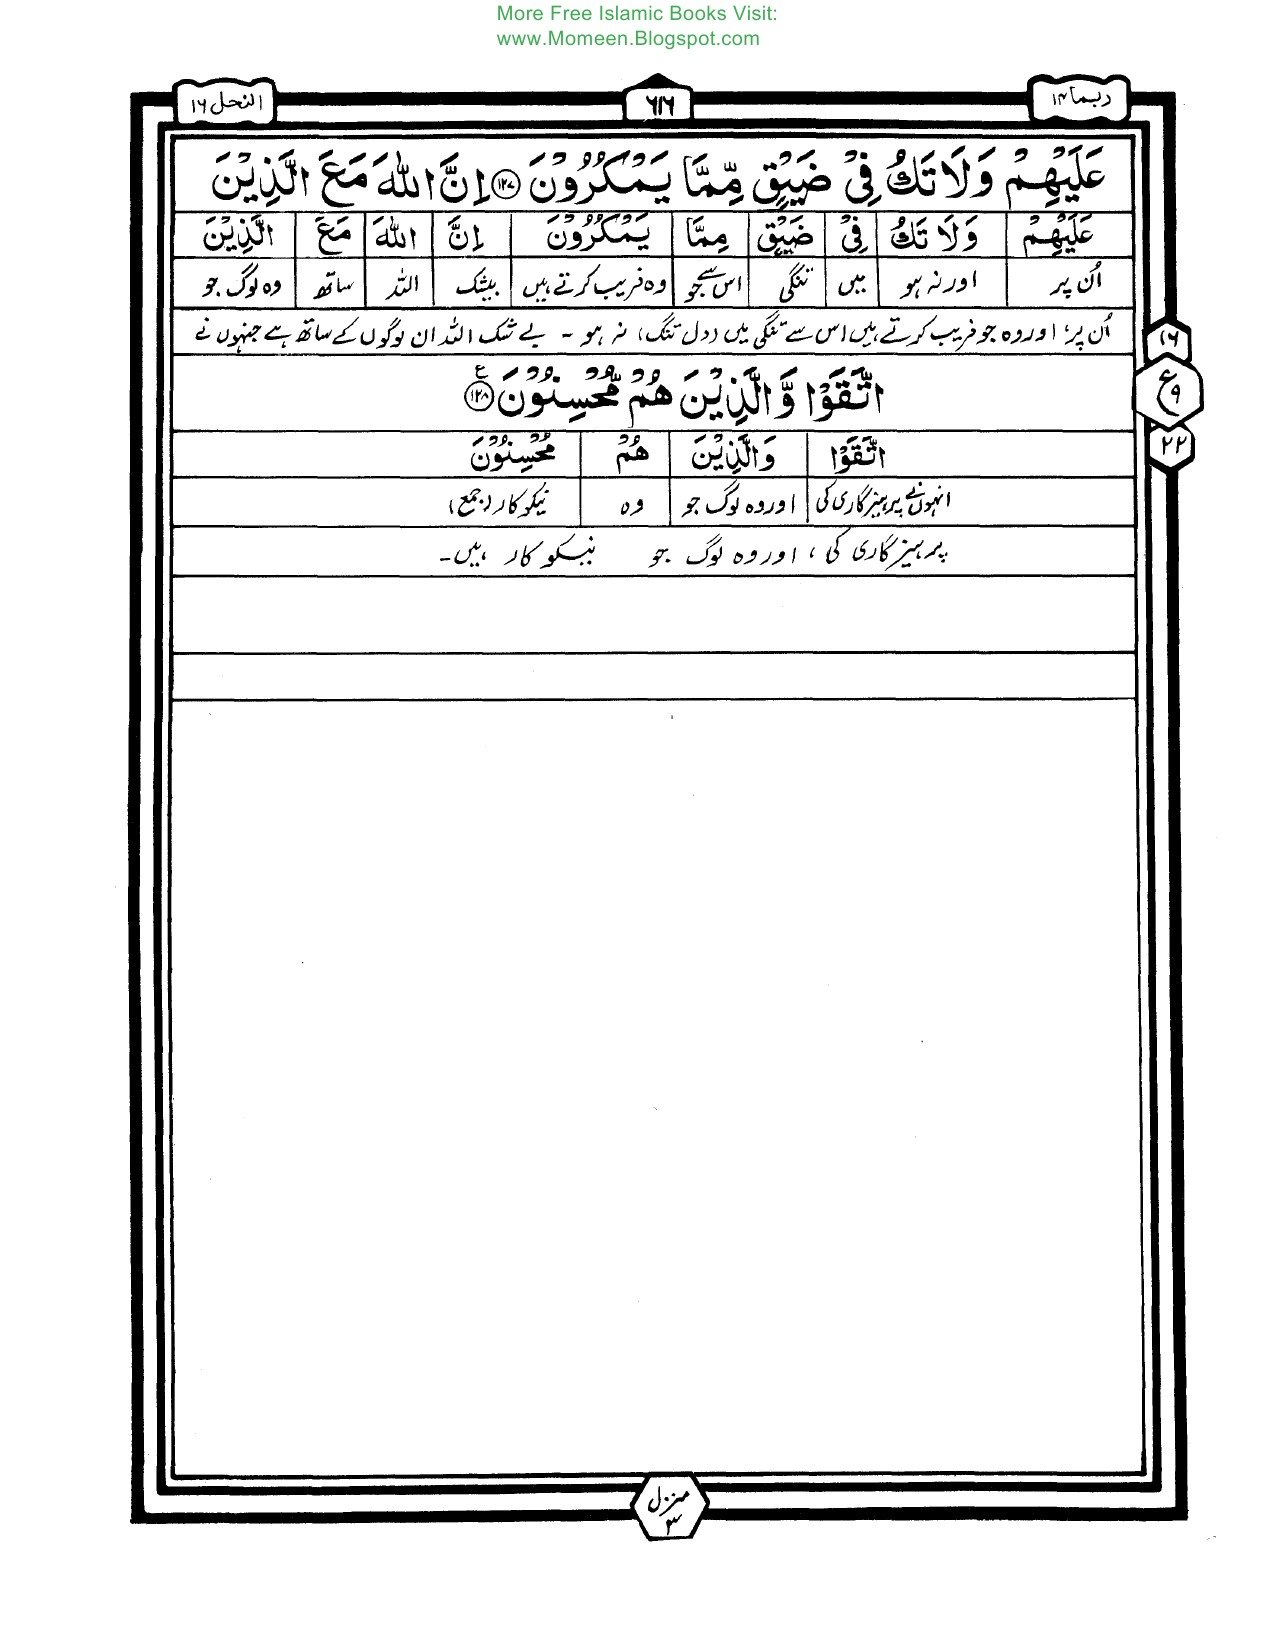 More Free Islamic Books Visit:
www.Momeen.Blogspot.com
ربما ۱۴
۶۱۶
النحل ۱۶
عَلَيْهِمْ وَلَا تَكُ فِىْ ضَيْقٍ مِّمَّا يَمْكُرُوْنَ ۝۱۲۷ اِنَّ اللّٰهَ مَعَ الَّذِيْنَ
عَلَيْهِمْ وَلَا تَكُ فِىْ ضَيْقٍ مِمَّا يَمْكُرُوْنَ اِنَّ اللّٰهَ مَعَ الَّذِيْنَ
اُن پر اور نہ ہو میں تنگی اس سے جو وہ فریب کرتے ہیں بیشک اللہ ساتھ وہ لوگ جو
اُن پر، اور وہ جو فریب کرتے ہیں اس سے تنگی میں (دل تنگ) نہ ہو - بے شک اللہ ان لوگوں کے ساتھ ہے جنہوں نے
۱۶
اتَّقَوْا وَّالَّذِيْنَ هُمْ مُّحْسِنُوْنَ ۝۱۲۸ ع
ع
۹
۲۲
اتَّقَوْا وَالَّذِيْنَ هُمْ مُحْسِنُوْنَ
انہوں نے پرہیزگاری کی اور وہ لوگ جو وہ نیکوکار (جمع)
پرہیزگاری کی، اور وہ لوگ جو نیکوکار ہیں۔
منزل
۳